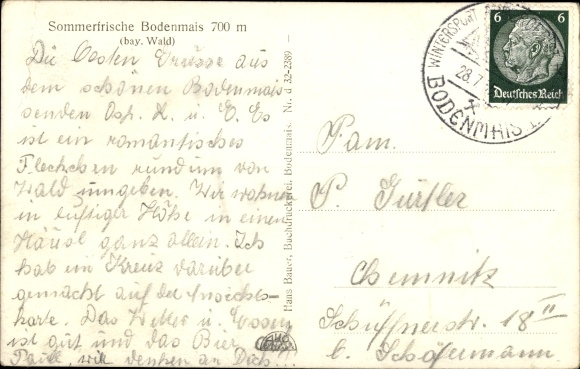 Sommerfrische Bodenmais 700 m
(bay. Wald)
Die besten Grüsse aus
dem schönen Bodenmais
senden Osk. K. u. E. Es
ist ein romantisches
Fleckchen rundum von
Wald umgeben. Wir wohnen
in luftiger Höhe in einem
Häusl ganz allein. Ich
hab ein Kreuz darüber
gemacht auf der Ansichts-
karte. Das Wetter u. Essen
ist gut und das Bier
wir denken an Dich!!!
Hans Bauer, Buchdruckerei, Bodenmais. Nr. d 32-2389
WINTERSPORT
28.7
BODENMAIS
6 6
Deutsches Reich
Fam.
P. Gürtler
Chemnitz
Schüffnerstr. 18 II
b. Schöfermann